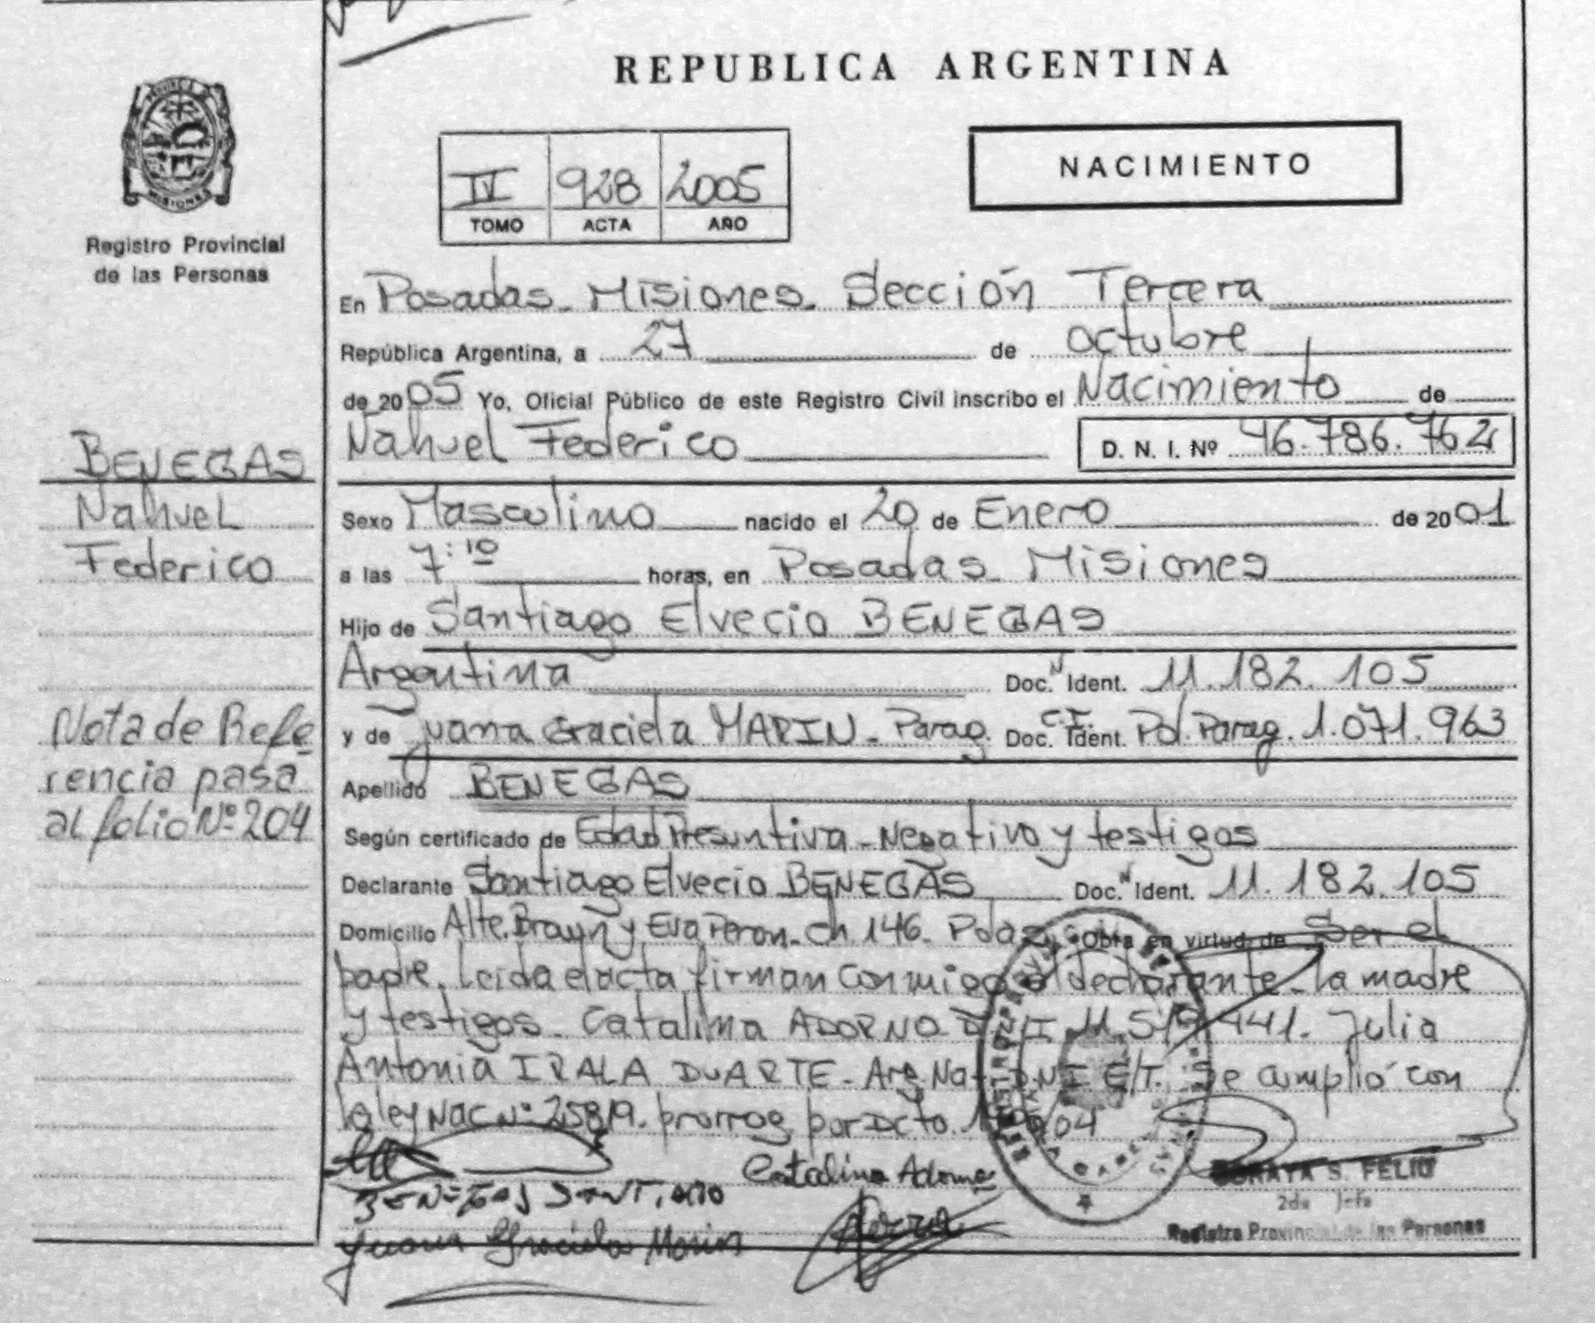 REPUBLICA ARGENTINA
MISIONES
Registro Provincial
de las Personas
IV 928 2005
TOMO ACTA AÑO
NACIMIENTO
En Posadas - Misiones - Sección Tercera
República Argentina, a 27 de octubre
de 2005 Yo, Oficial Público de este Registro Civil inscribo el Nacimiento de
Nahuel Federico D. N. I. Nº 46.786.762
BENEGAS
Nahuel
Federico
Sexo Masculino nacido el 20 de Enero de 2001
a las 7:10 horas, en Posadas - Misiones
Hijo de Santiago Elvecio BENEGAS
Argentina Doc. N Ident. 11.182.105
y de Juana Graciela MARIN - Parag. Doc. C.I. Ident. Pol. Parag. 1.071.963
Nota de Refe
rencia pasa
al folio Nº 204
Apellido BENEGAS
Según certificado de Edad Presuntiva - Negativo y testigos
Declarante Santiago Elvecio BENEGAS Doc. N Ident. 11.182.105
Domicilio Alte. Brown y Eva Peron - ch 146 - Pdas. Obra en virtud de Ser el
padre. Leida el acta firman conmigo el declarante - la madre
y testigos - Catalina ADORNO 441. Julia
Antonia IRALA DUARTE - Arg. Nat. D.N.I. E/T. Se amplió con
la ley Nac Nº 25819. prorrog. por Dcto.
Catalina Adorno
BENEGAS SANTIAGO
Juana Graciela Marin
SORAYA S. FELIU
2da Jefa
Registro Provincial de las Personas